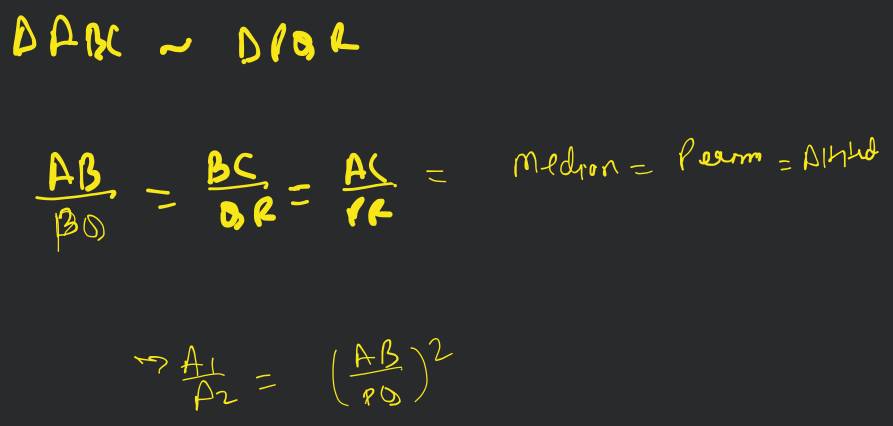 ΔABC ~ ΔPQR
AB/PQ = BC/QR = AC/PR = Median = Perim = Altitud
→ A1/A2 = (AB/PQ)^2